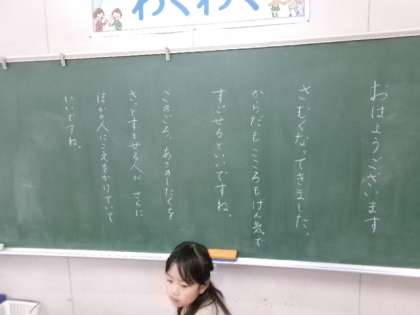 わくわく
おはようございます
さむくなってきました。
からだもこころもげん気で
すごせるといいですね。
このごろ、あさのしたくを
さっとすませる人が さらに
ほかの人にこえをかけていて
いいですね。